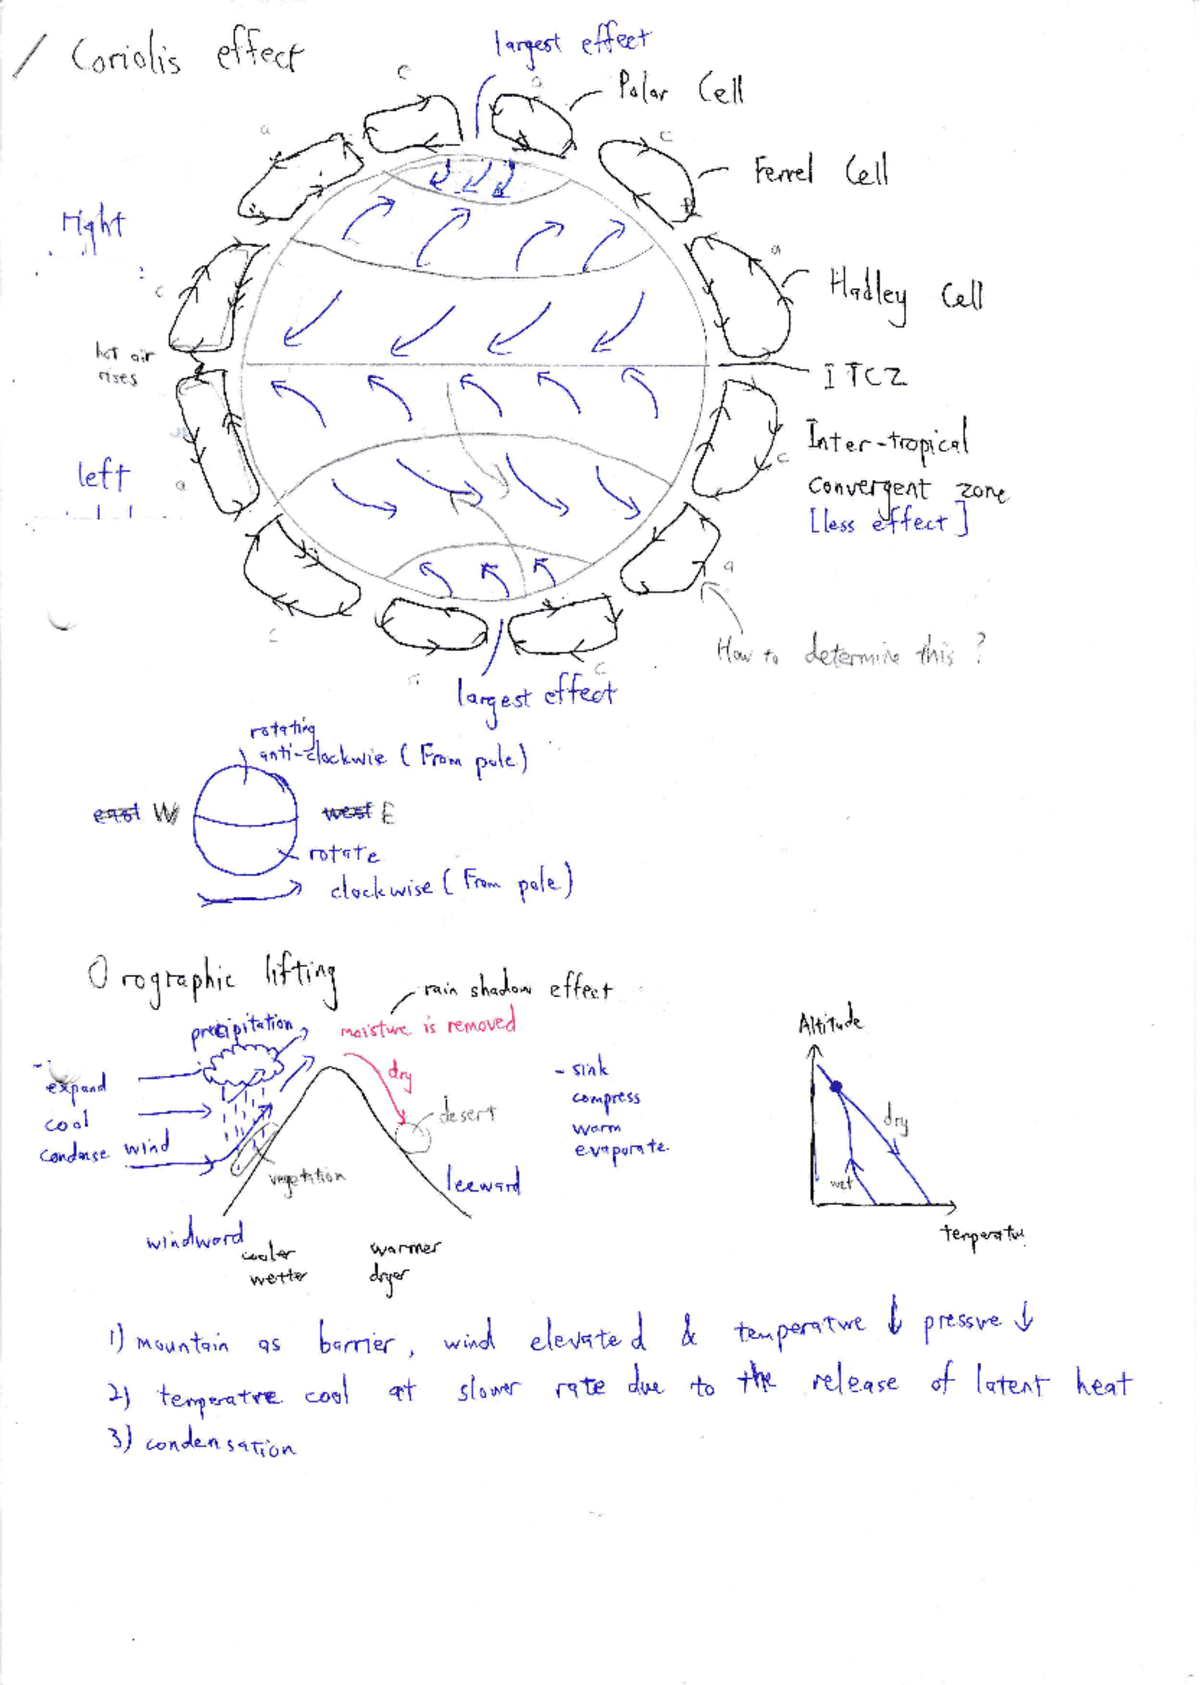 / Coriolis effect
largest effect
Polar Cell
c
a
a
c
Ferrel Cell
right
a
Hadley Cell
c
hot air
rises
ITCZ
Inter-tropical
convergent zone
[less effect]
left
a
c
a
How to determine this ?
c
c
largest effect
rotating
anti-clockwie (From pole)
east W
west E
rotate
clockwise (From pole)
Orographic lifting
rain shadow effect
precipitation
moisture is removed
Altitude
- expand
cool
condense wind
dry
- sink
compress
warm
evaporate
desert
dry
vegetation
leeward
wet
windward
cooler
wetter
warmer
dryer
1) mountain as barrier, wind elevated & temperature ↓ pressure ↓
2) temperatre cool at slower rate due to the release of latent heat
3) condensation